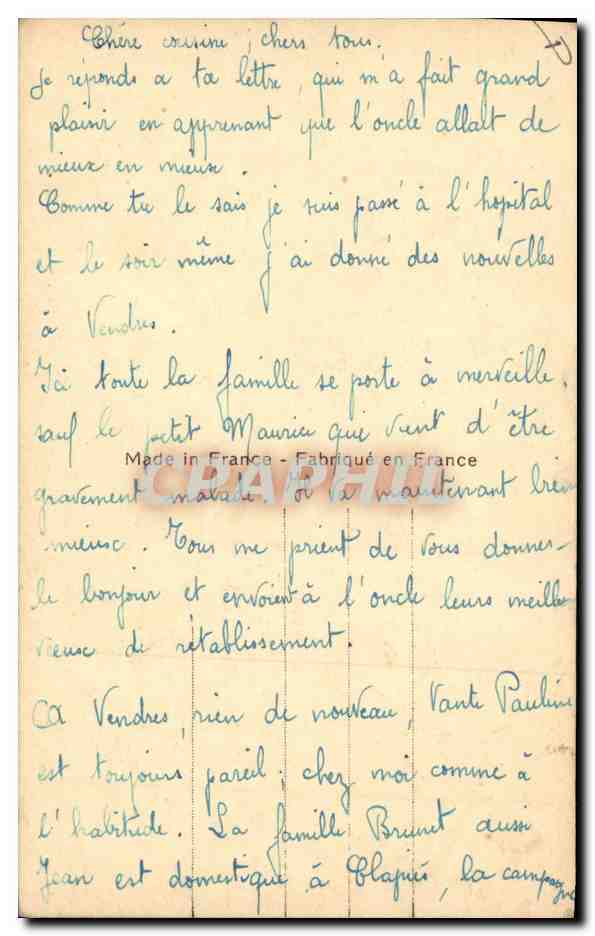 Chère cousine, chers tous.
Je réponds a ta lettre, qui m'a fait grand
plaisir en apprenant que l'oncle allait de
mieux en mieux.
Comme tu le sais je suis passé à l'hopital
et le soir même j'ai donné des nouvelles
à Vendres.
Ici toute la famille se porte à merveille,
sauf le petit Maurice que vient d'être
Made in France - Fabriqué en France
gravement malade. Il a maintenant bien
CPAPHIL
mieux. Tous me prient de vous donner
le bonjour et envoient à l'oncle leurs meille
vieux de rétablissement.
A Vendres, rien de nouveau, Tante Pauline
est toujours pareil, chez moi comme à
l'habitude. La famille Brunet aussi
Jean est domestique à Clapiès, la campagne